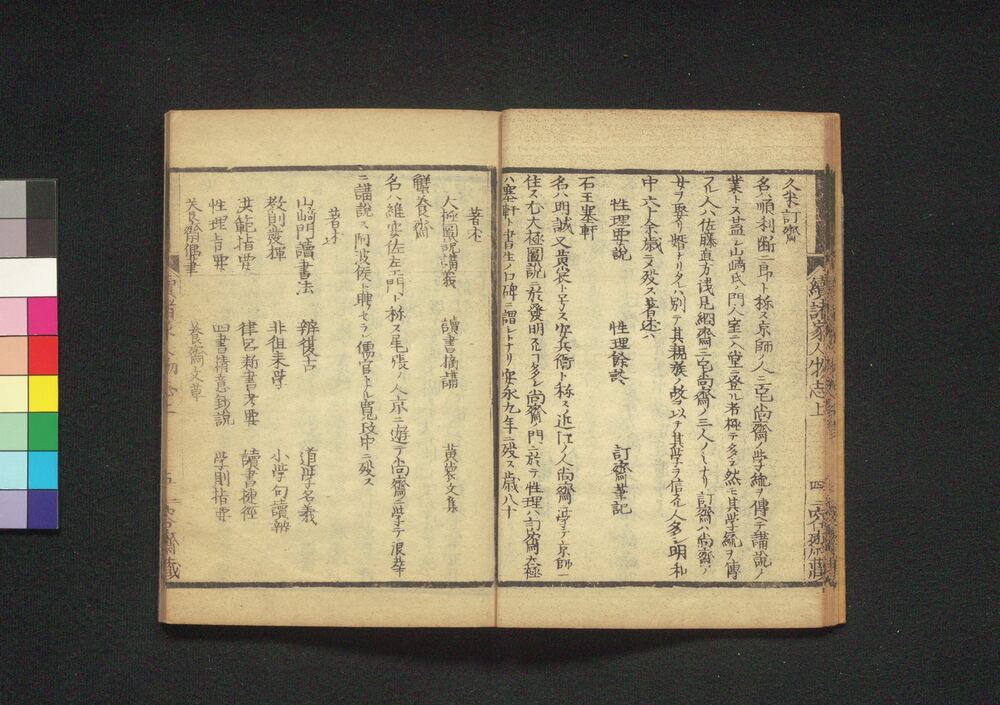 久米訂齋
名ハ順利斷二郎ト称ス京師ノ人三宅尚齋ノ学統ヲ傳ヘテ講説ノ
業トス蓋シ山﨑氏ノ門人室ニ入堂ニ登ル者極テ多シ然モ其学統ヲ傳
フル人ハ佐藤直方浅見絅齋三宅尚齋ノ三人ノミナリ訂齋ハ尚齋ノ
女ヲ娶リ婿ナリタルハ別テ其親族ノ故ヲ以テ其学ヲ信スル人多シ明和
中六十余歳ニテ殁ス著述ハ
性理要説 性理餘談 訂齋筆記
石王塞軒
名ハ明誠又黄裳ト号ス安兵衞ト称ス近江ノ人尚齋ニ学テ京師ニ
住ス尤大極圖説ニ於テ發明スルコト多シ尚齋ノ門ニ於テ性理ハ訂齋大極
ハ塞軒ト書生ノ口碑ニ謂レトナリ安永九年ニ殁ス歳八十
著述
大極圖説講義 讀書摘講 黄裳文集
蟹養齋
名ハ維安佐左エ門ト称ス尾張ノ人京ニ遊テ尚齋ニ学テ浪華
ニ講説ス阿波侯ト聘セラレ儒官トナル寛政中ニ殁ス
著述
山﨑門讀書法 辨復古 道学名義
教則發揮 非徂徠学 小学句讀辨
洪範指要 律呂新書考要 讀書捷徑
性理旨要 四書精意鈔説 学則指要
養齋偶筆 養齋文章
續諸家人物志上 四